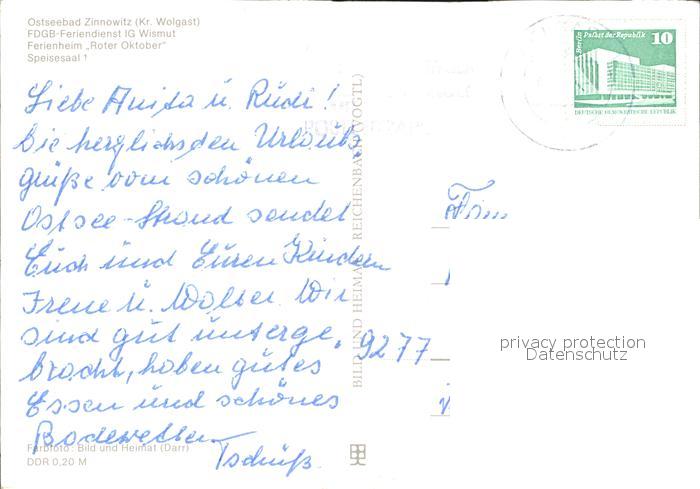 Ostseebad Zinnowitz (Kr. Wolgast)
FDGB-Feriendienst IG Wismut
Ferienheim „Roter Oktober"
Speisesaal 1
Liebe Anita u. Rudi!
Die herzlichsden Urlaubs
grüße vom schönen
Ostsee-Strand sendet
Euch und Euren Kindern
Irene u. Walter. Wir
sind gut unterge,
bracht, haben gutes
Essen und schönes
Badewetter
Tschüß.
Farbfoto: Bild und Heimat (Darr)
DDR 0,20 M
BILD UND HEIMAT REICHENBACH (VOGTL)
Berlin Palast der Republik
10
DEUTSCHE DEMOKRATISCHE REPUBLIK
Fam
9277
privacy protection
Datenschutz